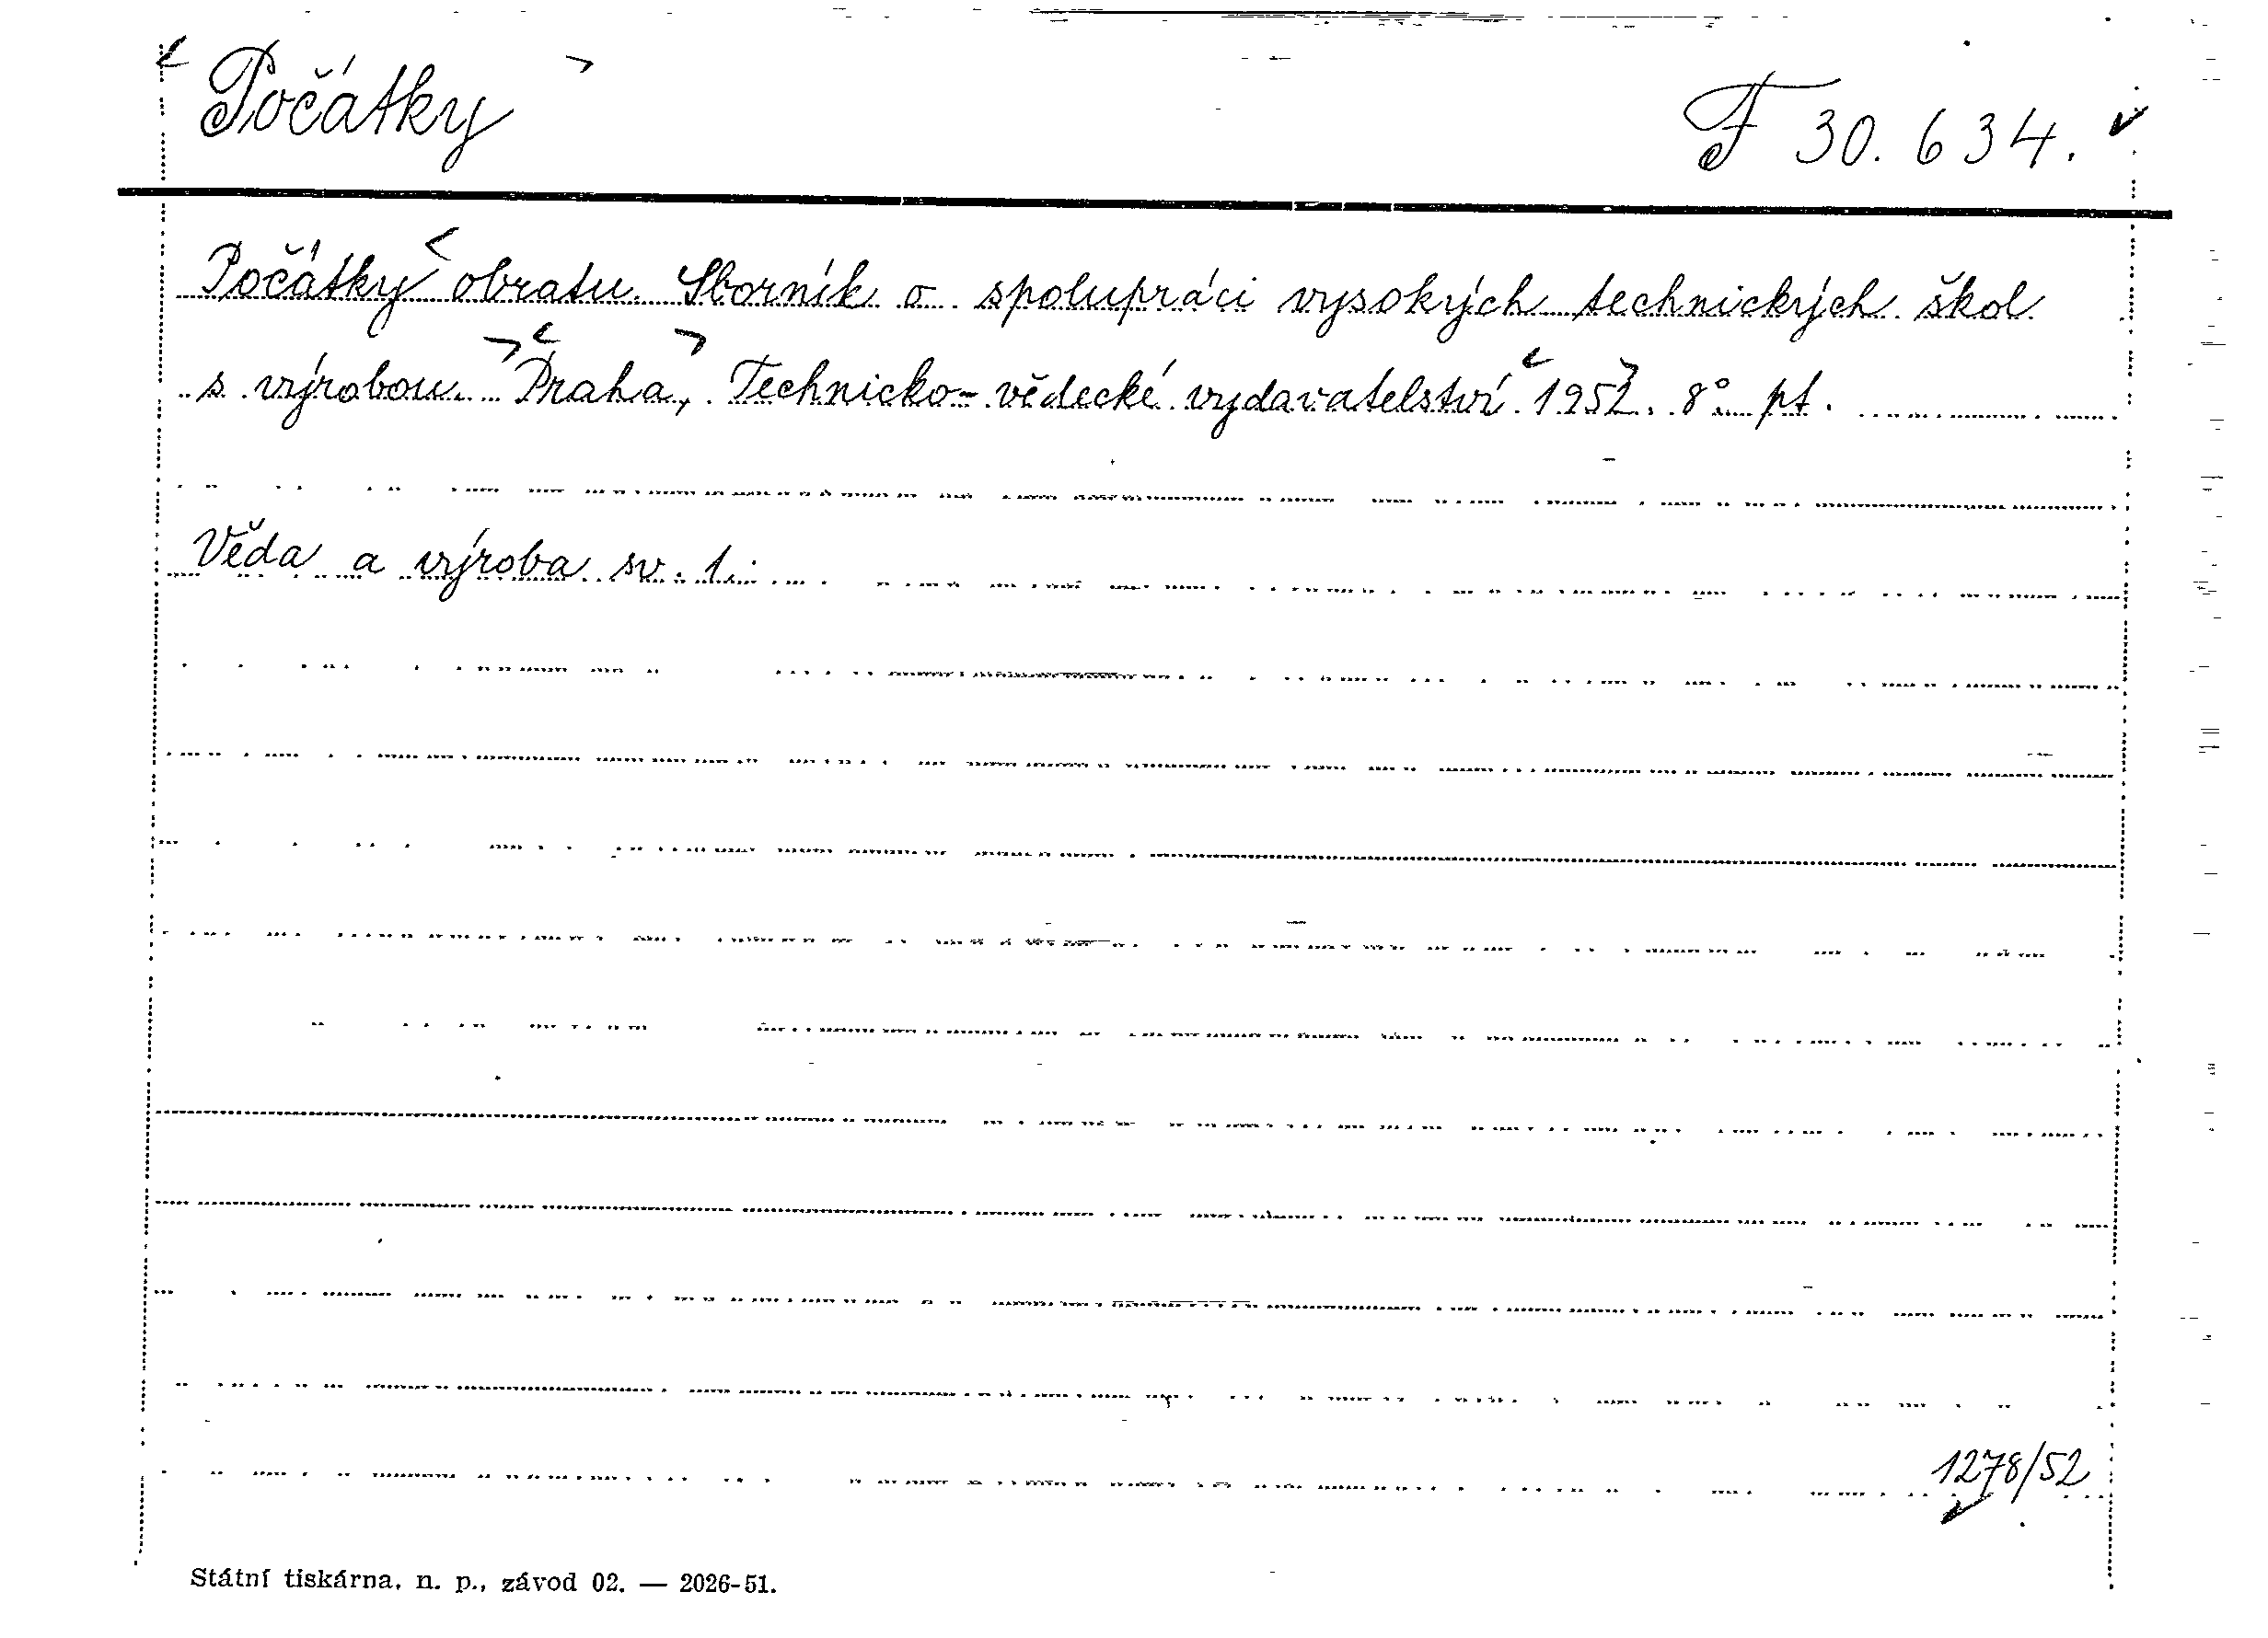 Počátky
F 30.634.
Počátky obratu. Sborník o spolupráci vysokých technických škol
s výrobou. Praha, Technicko-vědecké vydavatelství 1952. 8° pt.
Věda a výroba sv. 1.
1278/52
Státní tiskárna, n. p., závod 02. — 2026-51.